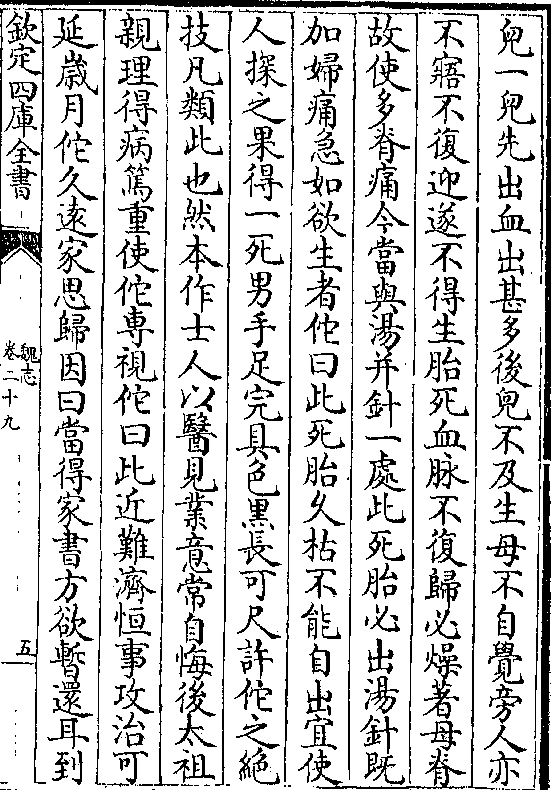 兒一兒先出血出甚多後兒不及生母不自覺旁人亦
不寤不復迎遂不得生胎死血脉不復歸必燥著母脊
故使多脊痛今當與湯并針一處此死胎必出湯針既
加婦痛急如欲生者佗曰此死胎久枯不能自出宜使
人探之果得一死男手足完具色黑長可尺許佗之絶
技凡類此也然本作士人以醫見業意常自悔後太祖
親理得病篤重使佗專視佗曰此近難濟恒事攻治可
延歲月佗久逺家思歸因曰當得家書方欲暫還耳到
欽定四庫全書
魏志
卷二十九
五